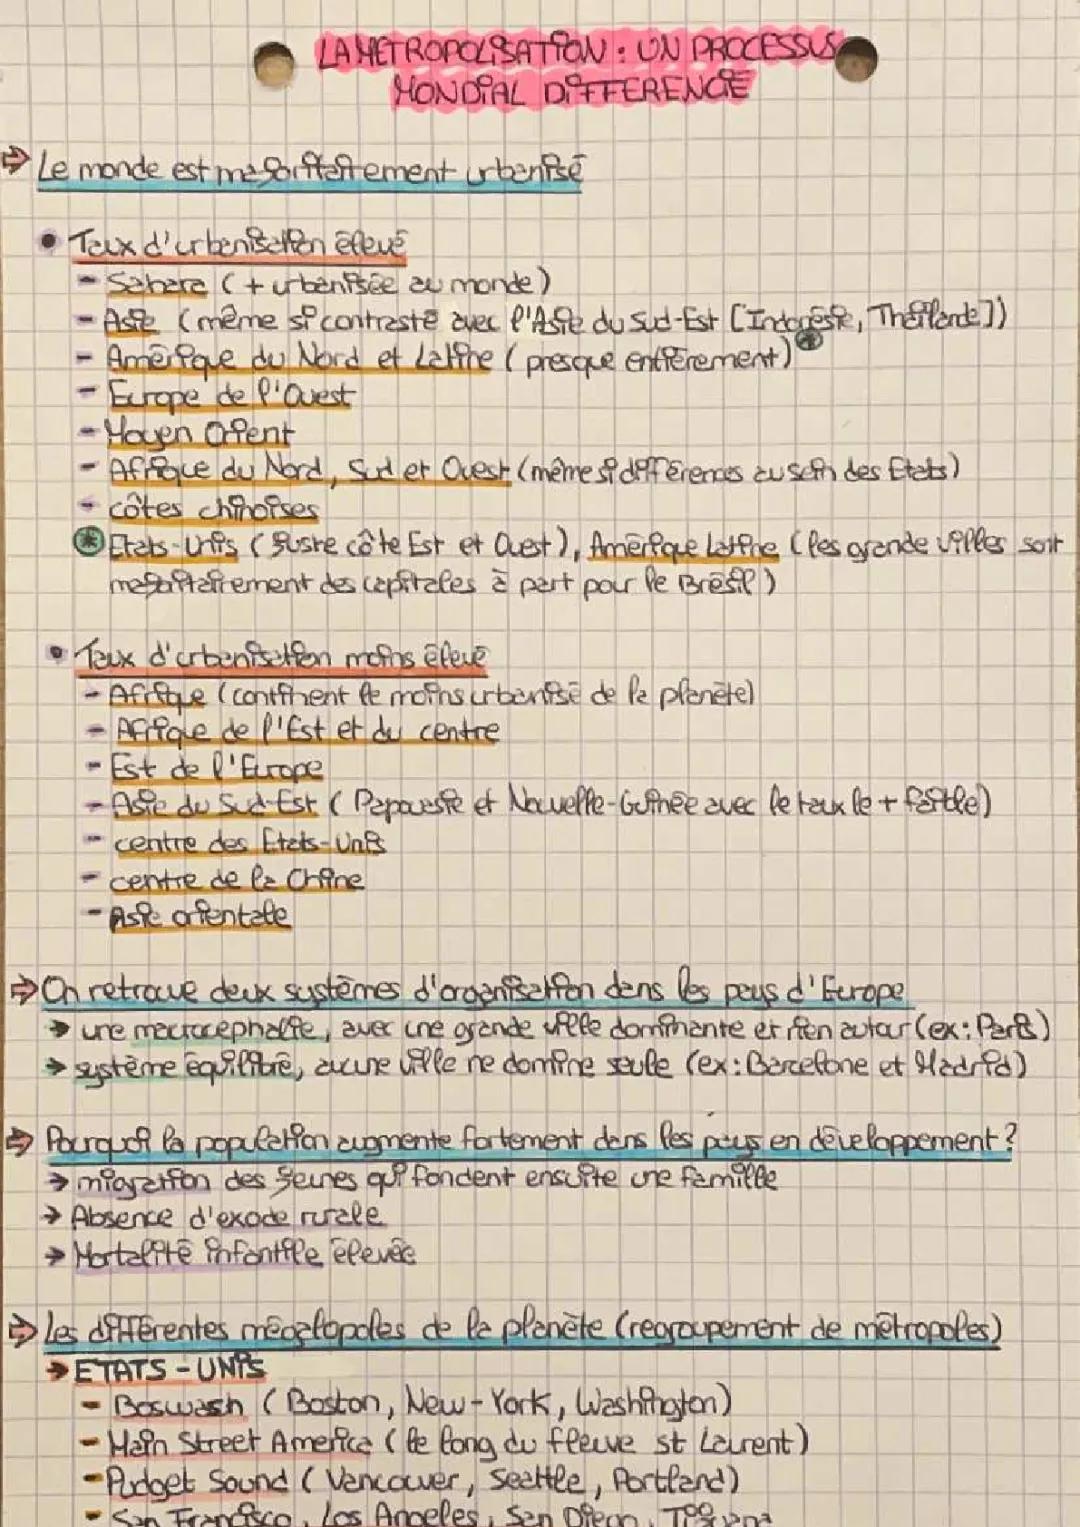 LA METROPOLISATION : UN PROCESSUS
MONDIAL DIFFERENCIE
⇒ Le monde est majoritairement urbanisé
• Taux d'urbanisation élevé
- Sahara (+ urbanisée au monde)
- Asie (même si contrasté avec l'Asie du Sud-Est [Indonésie, Thaïlande])
- Amérique du Nord et Latine (presque entièrement) *
- Europe de l'Ouest
- Moyen Orient
- Afrique du Nord, Sud et Ouest (même si différences au sein des Etats)
- côtes chinoises
* Etats-Unis (juste côte Est et Ouest), Amérique Latine (les grande villes sont
majoritairement des capitales à part pour le Brésil)
• Taux d'urbanisation moins élevé
- Afrique (continent le moins urbanisé de la planète)
- Afrique de l'Est et du centre
- Est de l'Europe
- Asie du Sud-Est (Papouasie et Nouvelle-Guinée avec le taux le + faible)
- centre des Etats-Unis
- centre de la Chine
- Asie orientale
⇒ On retrouve deux systèmes d'organisation dans les pays d'Europe
→ une macrocéphalie, avec une grande ville dominante et rien autour (ex: Paris)
→ système équilibré, aucune ville ne domine seule (ex: Barcelone et Madrid)
⇒ Pourquoi la population augmente fortement dans les pays en développement ?
→ migration des jeunes qui fondent ensuite une famille
→ Absence d'exode rurale
→ Mortalité infantile élevée
⇒ Les différentes mégalopoles de la planète (regroupement de métropoles)
→ ETATS-UNIS
- Boswash (Boston, New-York, Washington)
- Main Street America (le long du fleuve st Laurent)
- Pudget Sound (Vancouver, Seattle, Portland)
- San Francisco, Los Angeles, San Diego, Tijuana